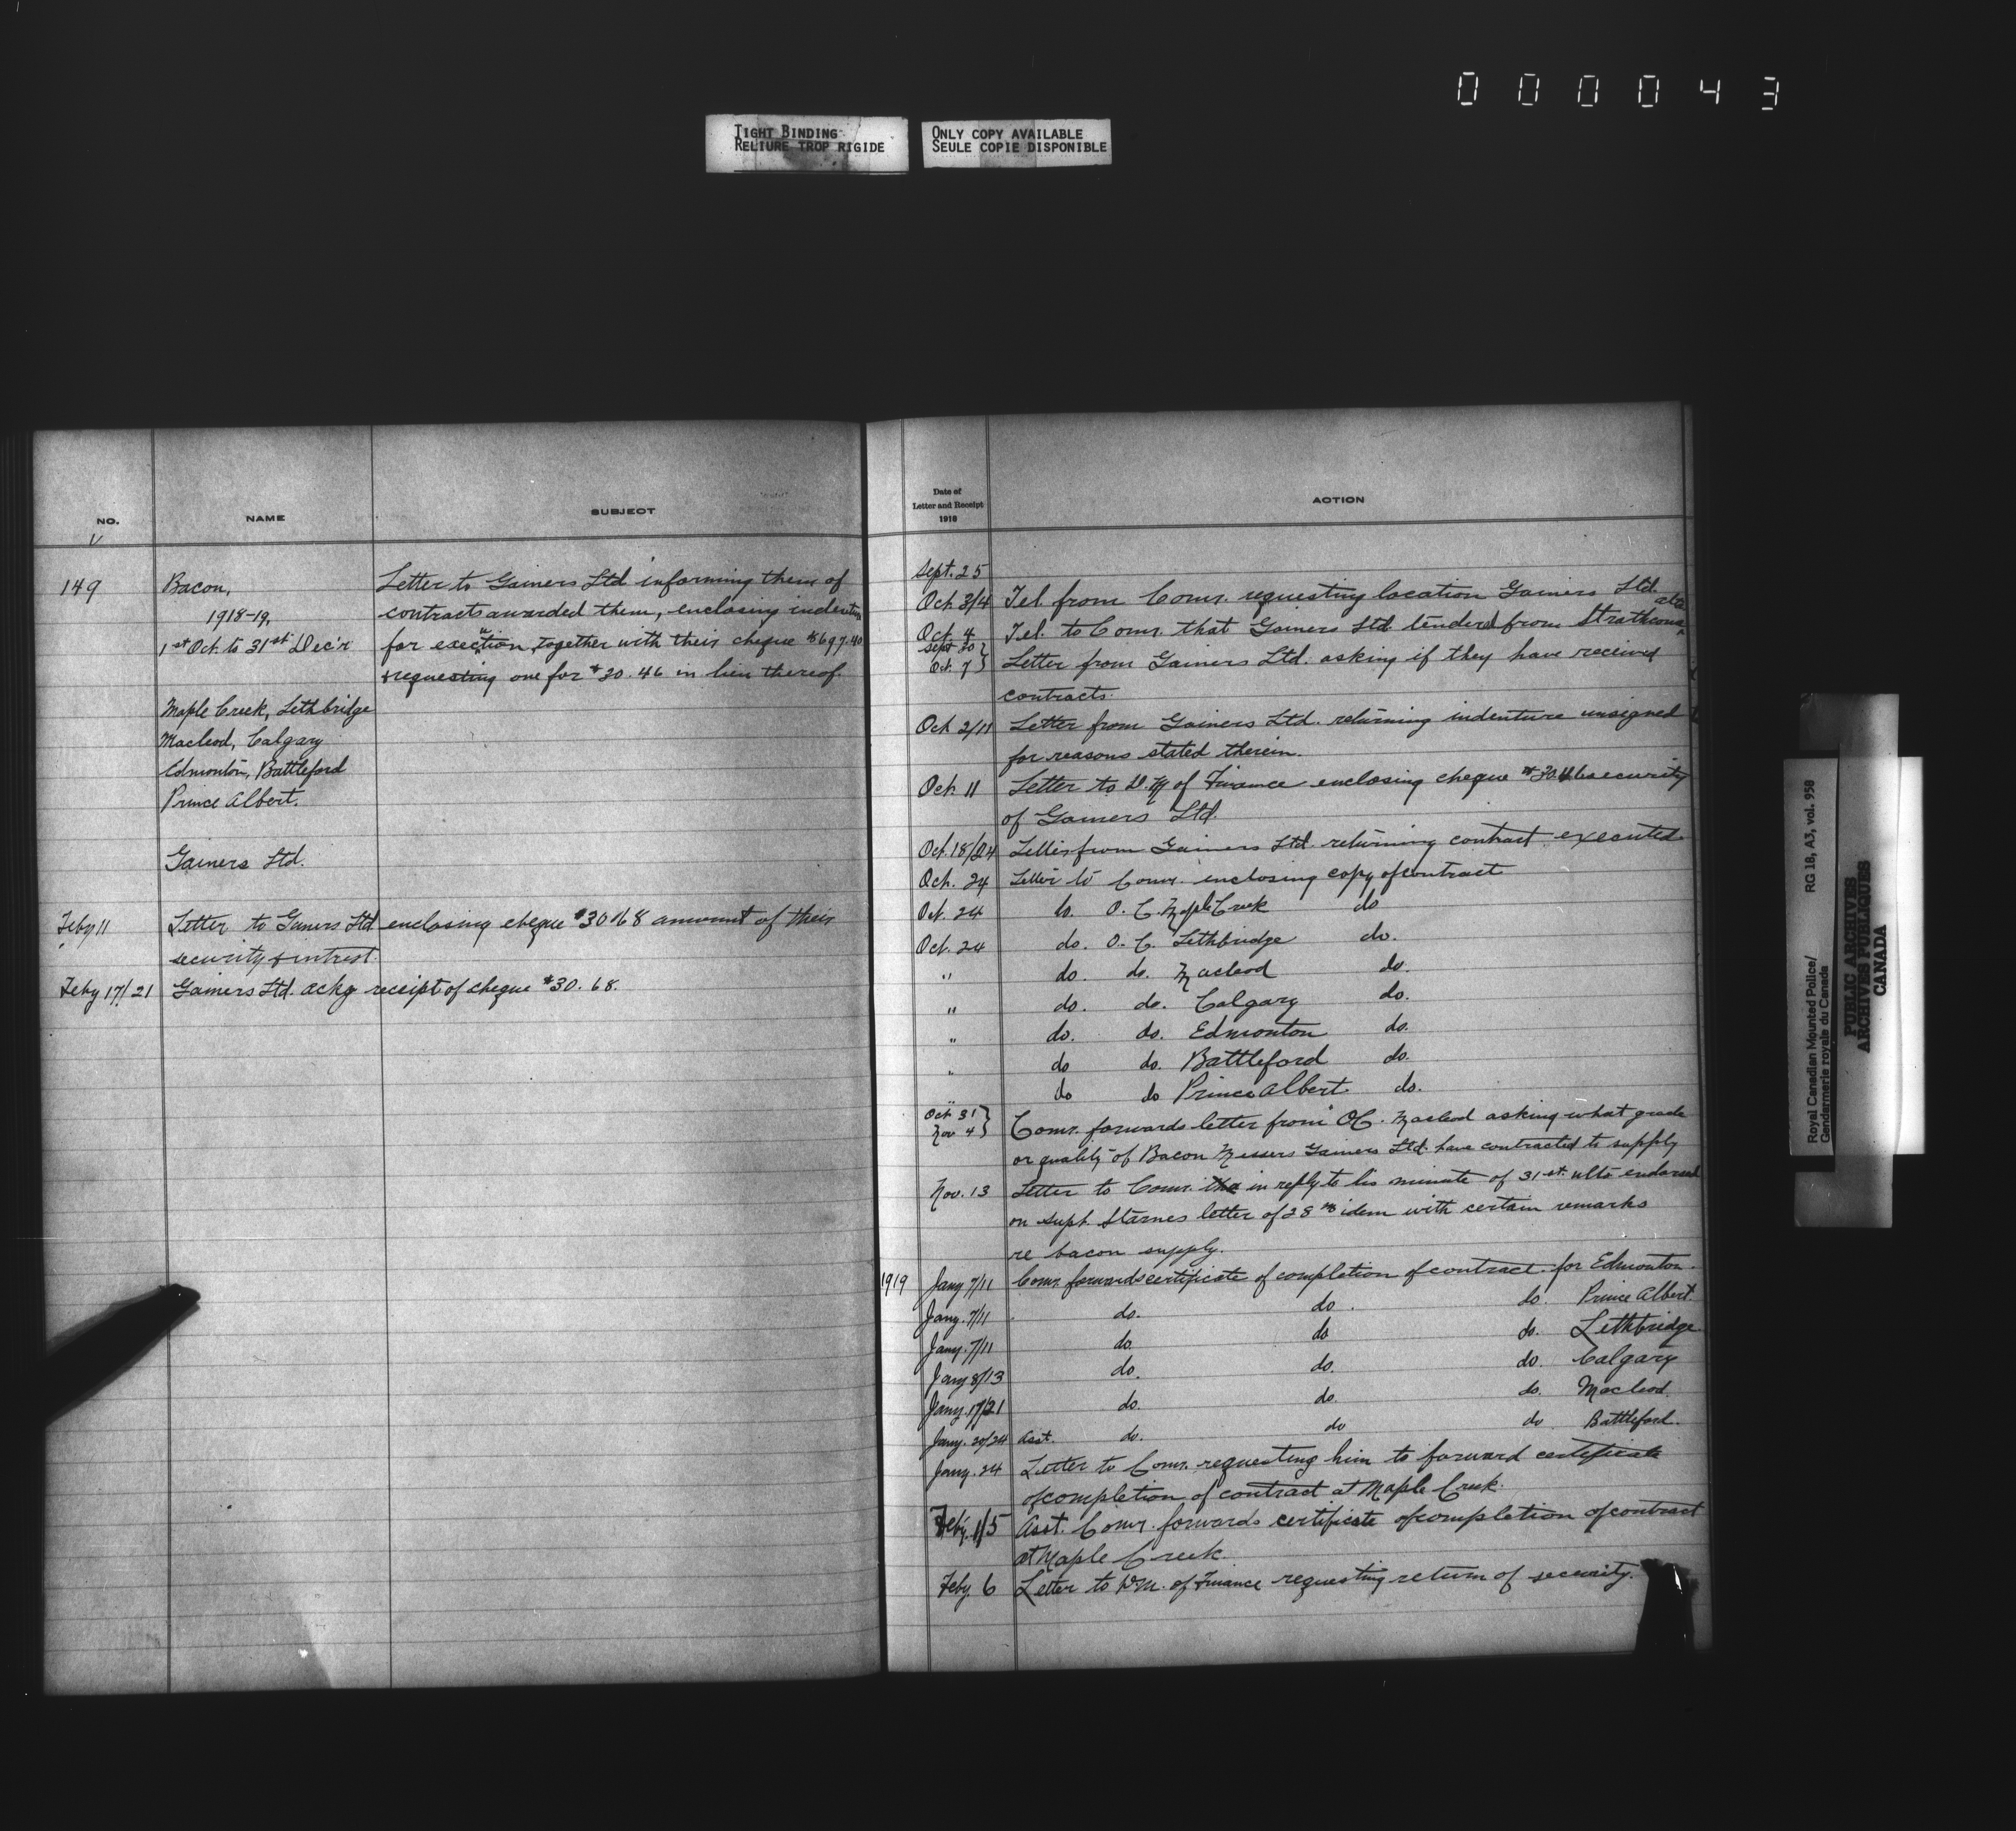 000043
TIGHT BINDING
RELIURE TROP RIGIDE
ONLY COPY AVAILABLE
SEULE COPIE DISPONIBLE
NO.
NAME
SUBJECT
149
Bacon,
1918-19,
1st Oct. to 31st Dec'r
Maple Creek, Lethbridge
Macleod, Calgary
Edmonton, Battleford
Prince Albert.
Gainers Ltd.
Letter to Gainers Ltd informing them of
contracts awarded them, enclosing indenture
for execution, together with their cheque $697.40
& requesting one for $30.46 in lieu thereof.
Feby 11 Letter to Gainers Ltd enclosing cheque $30.68 amount of their
security & intrest.
Feby 17/21 Gainers Ltd. ackg receipt of cheque $30.68.
Date of
Letter and Receipt
1918
ACTION
Sept. 25
Oct. 3/4 Tel. from Comr. requesting location Gainers Ltd.
Oct. 4 Tel. to Comr. that Gainers Ltd. tendered from Strathcona Alta
Sept 30 } Oct. 7 } Letter from Gainers Ltd. asking if they have received
contracts.
Oct 2/11 Letter from Gainers Ltd. returning indenture unsigned
for reasons stated therein.
Oct. 11 Letter to D.M of Finance enclosing cheque $30.46 security
of Gainers Ltd.
Oct. 18/24 Letter from Gainers Ltd. returning contract executed.
Oct. 24 Letter to Comr. enclosing copy of contract
Oct. 24 do. O. C. Maple Creek do
Oct. 24 do. O. C. Lethbridge do.
" do. do. Macleod do.
" do. do. Calgary do.
" do. do. Edmonton do.
" do do. Battleford do.
" do do Prince Albert. do.
Oct 31 } Nov 4 } Comr. forwards letter from O.C. Macleod asking what grade
or quality of Bacon Messers Gainers Ltd. have contracted to supply
Nov. 13 Letter to Comr. in reply to his minute of 31st. ulto endorsed
on Supt. Starnes letter of 28th idem with certain remarks
re bacon supply.
1919 Jany 7/11 Comr. forwards certificate of completion of contract for Edmonton.
Jany. 7/11 do. do. do. Prince Albert.
Jany. 7/11 do. do do. Lethbridge
Jany 8/13 do. do. do. Calgary
Jany. 17/21 do. do. do. Macleod.
Jany. 20/24 Asst. do. do do Battleford.
Jany. 24 Letter to Comr. requesting him to forward certificate
of completion of contract at Maple Creek.
Feby. 1/5 Asst. Comr. forwards certificate of completion of contract
at Maple Creek.
Feby. 6 Letter to D.M. of Finance requesting return of security.
Royal Canadian Mounted Police/
Gendarmerie royale du Canada
RG 18, A3, vol. 958
PUBLIC ARCHIVES
ARCHIVES PUBLIQUES
CANADA